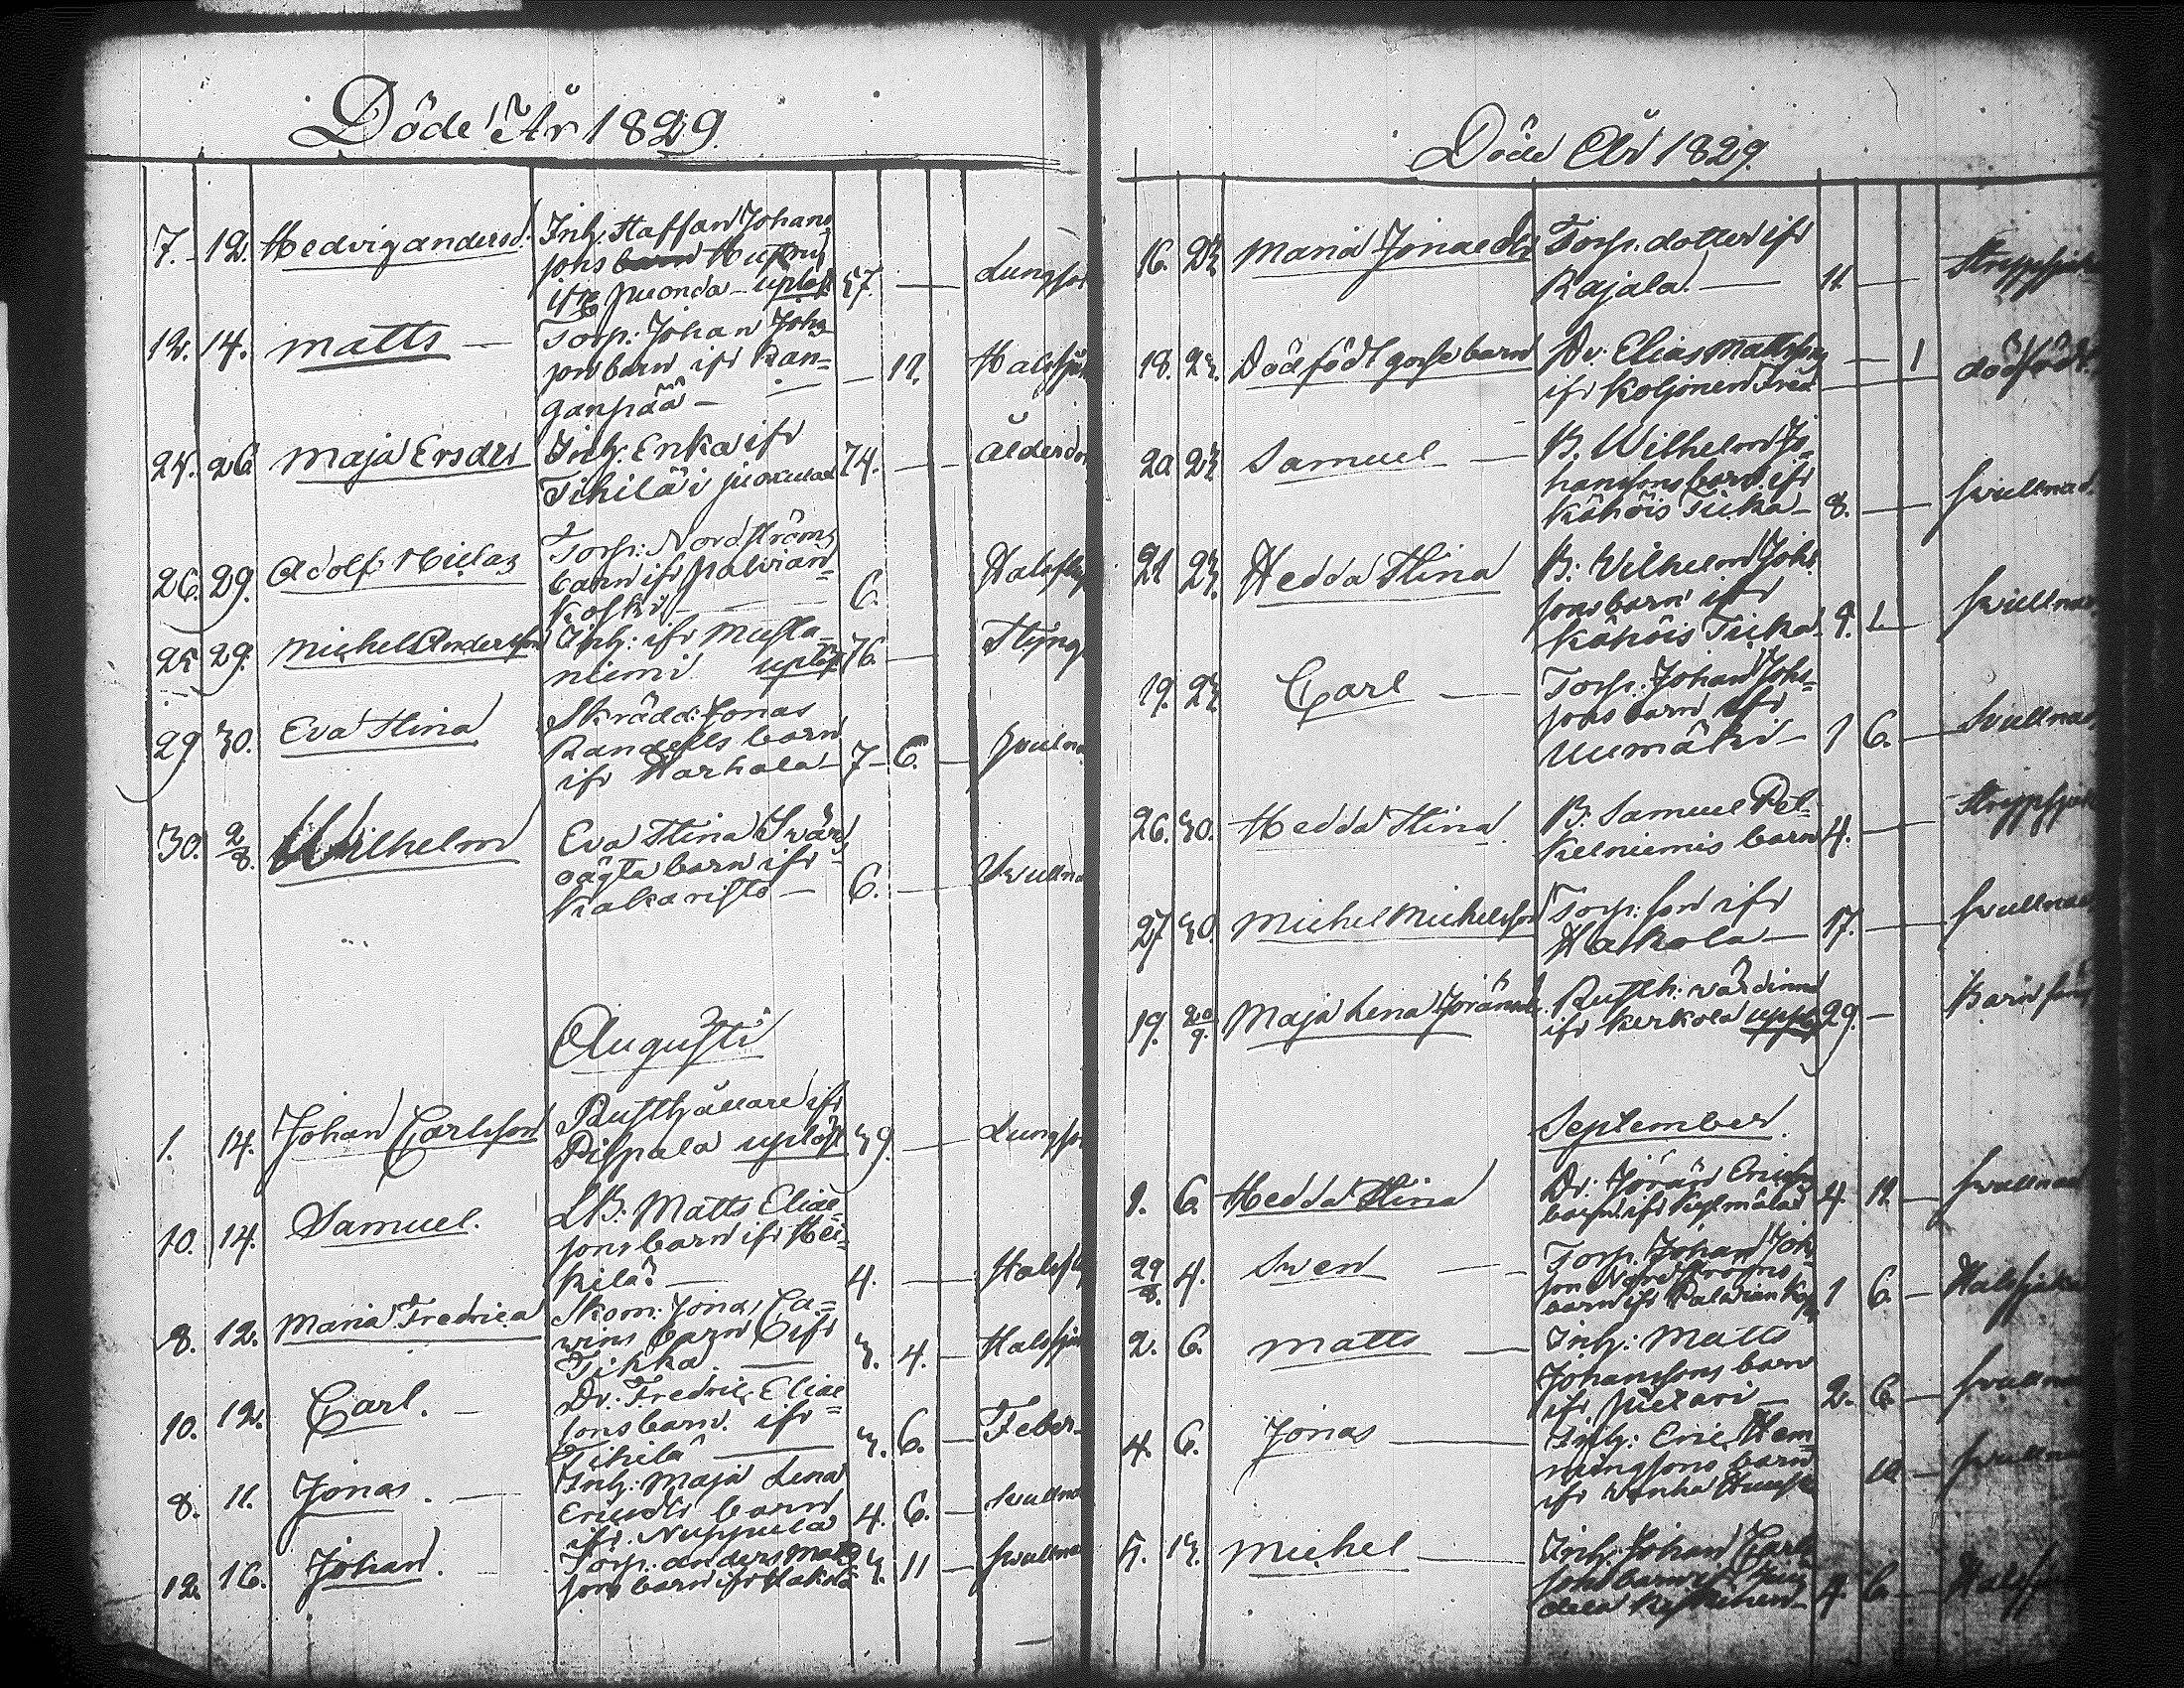 Döde År 1829.
7. 12. Hedvig andersd. Inh. Staffan Johans
sons barn Hustru
ifr Juonda uplöst 57. — Lungsot
12. 14. Matts — Torp. Johan Johs
sons barn ifr Kan-
ganpää — — 11. Halssjuk
25. 26 Maja Ersdr Inh. Enka ifr
Tihilä i 74. — Ålderdom
26. 29. Adolf Niclas Torp: Nordströms
barn ifr Palvian-
koski — 6. Halsfluss
25 29. Michel Andersson Inh: ifr Musta-
niemi uplöst 76. — Styng
29 30. Eva Stina Skrädd: Jonas
Randells barn
ifr Harhala — 7 — 6. — Svulna
30. 2/8. Wilhelm Eva Stina Svärs
oägta barn ifr
Kakaristo — 6. — Svullna
Augusti
1. 14. Johan Carlsson Rusthållare ifr
Pispala uplöst 39. — Lungsot
10. 14. Samuel. LB. Matts Elias
sons barn ifr Hei-
kilä — 4. — Halsfl
8. 12. Maria Fredrica Skom. Jonas Ca-
wins barn ifr
Tikka. — 3. 4. — Halssjuk
10. 12. Carl. — Dr. Fredric Elias
sons barn. ifr
Tihilä — 3. 6. — Feber
8. 11. Jonas. — Inh: Maja Lena
Ericsdr barn
ifr. Nuppula 4. 6. — Svullna
12. 16. Johan. — Torp: anders Matts
sons barn ifr Hakola 3. 11 — Svullna
Döde År 1829.
16. 23 Maria Jonaedtr Torp. dotter ifr
Rajala. — 11. — Strypsjuka
18. 23. Dödfödt gosse barn Dr. Elias Mattsons
ifr Koljonen — 1 dödfödt.
20 23 Samuel — B. Wilhelm Jo-
hansons barn ifr
Kähöis Tuka — 8. — Svullnad.
21 23. Hedda Stina B. Wilhelm Johs
sons barn ifr
Kähöis Tuka 9. 1. — Svullnad
19. 23 Carl — Torp. Johan Johs-
sons barn ifr
Uumäki — 1 6. — Svullnad
26. 30. Hedda Stina. B. Samuel Pel-
kelniemis barn 4. — Strypsjuk
27 30. Michel Michelsson Torp: son ifr
Hakola — 17. — Svullnad
19. 20/9. Maja Lena Jöransd. Rusth: värdinna
ifr Kerkola uppl 29. — Barnsäng
September.
1. 6. Hedda Stina Dr. Jöran Ericss
barn ifr Kylmälä 4. 11. — Svullnad
29/8. 4. Swen — Torp. Johan Joh-
son Nordströms
barn ifr Palvian Kos 1 6. — Halssjuka
2. 6. Matts — Inh: Matts
Johanssons barn
ifr — 2. 6. — Svullna
4. 6. Jonas — Inh: Eric Hem-
mingsons barn
ifr Wanha 10 — Svullna
5. 13. Michel — Inh: Johan Carls
sons barn ifr
4. 6. — Halssju